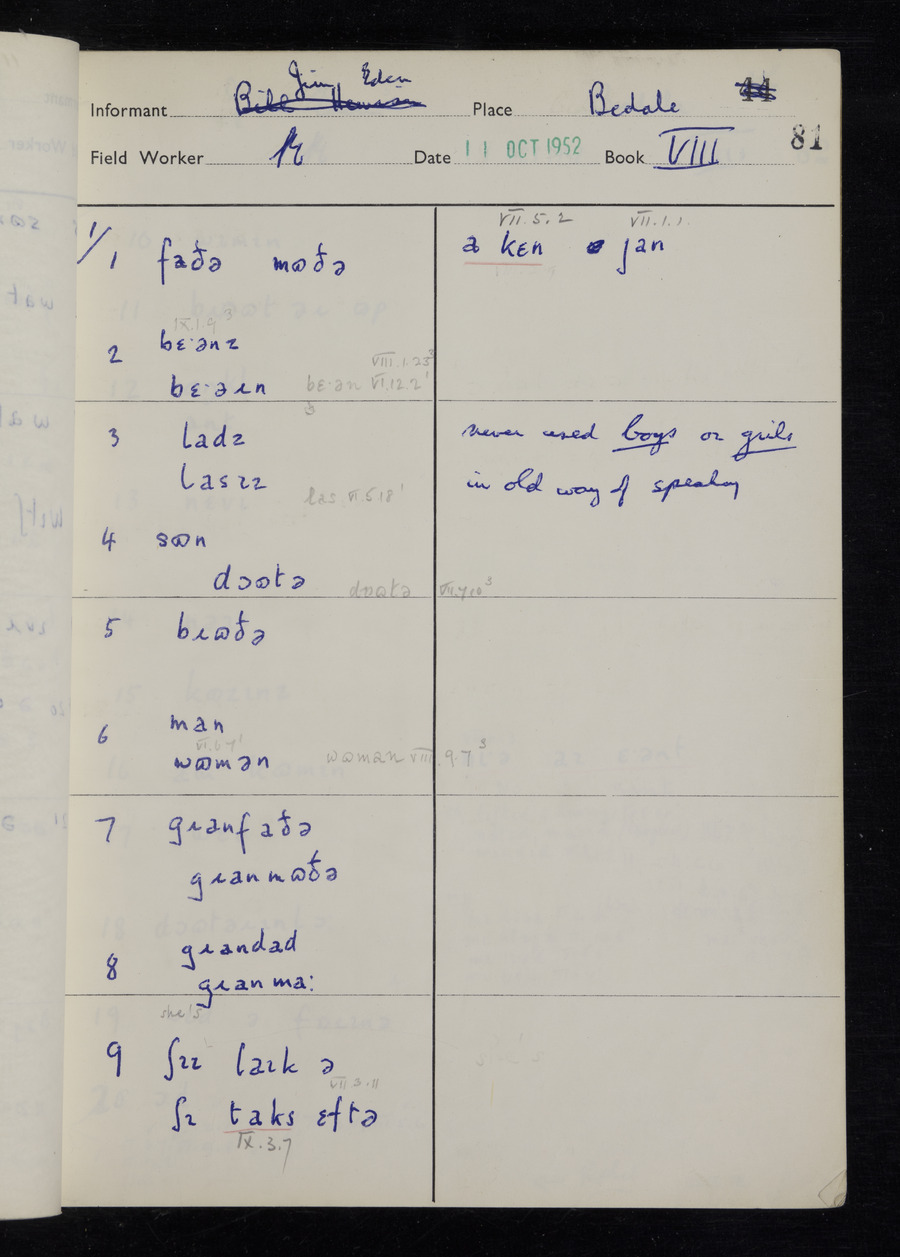 Jim Eden
Informant Bill Place Bedale 44
81
Field Worker Date 11 OCT 1952 Book VIII
VII.5.2 VII.1.1.
1/1 faðə mɷðə ə kɛn jan
IX.1.9 3
2 bɛˑənz
VIII.1.23³
bɛˑəɹn bɛˑən VI.12.2¹
3 ladz never used boys or girls
lasɪz las VI.5.18¹ in old way of speaking
4 sɷn
dɔɷtə dɔɷtə VII.7.10³
5 bɹɷðə
6 man
VI.6.7¹
wɷmən wɷman VIII.9.7³
7 gɹanfaðə
gɹanmɷðə
8 gɹandad
gɹanma:
she's
9 ʃɪz laɪk ə
VII.3.11
ʃɪ taks ɛftə
IX.3.7